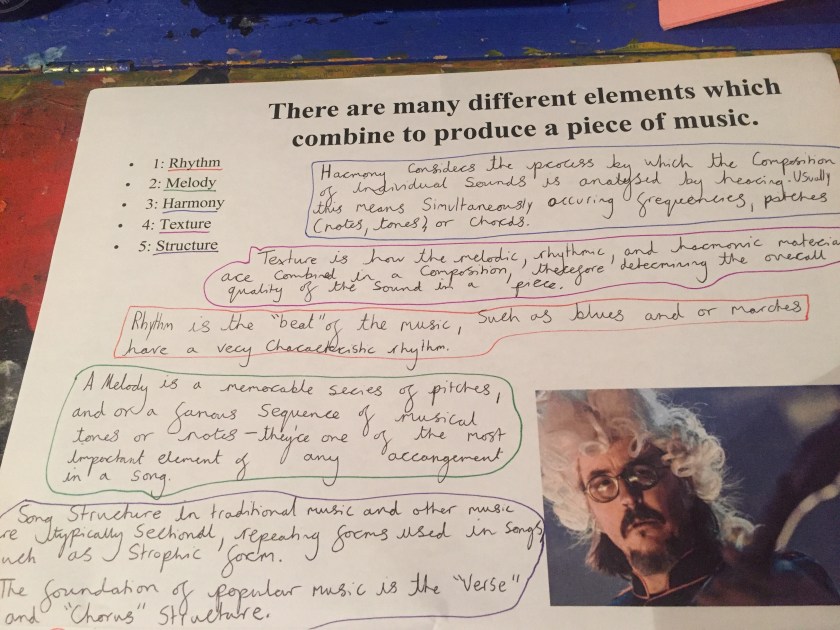 There are many different elements which
combine to produce a piece of music.
• 1: Rhythm
• 2: Melody
• 3: Harmony
• 4: Texture
• 5: Structure
Harmony Considers the process by which the Composition
of individual Sounds is analysed by hearing. Usually
this means Simultaneously occuring frequencies, patches
(notes, tones) or chords.
Texture is how the melodic, rhythmic, and harmonic materia
are Combined in a Composition, therefore determining the overall
quality of the Sound in a piece.
Rhythm is the "beat" of the music, Such as blues and or marches
have a very Characteristic rhythm.
A Melody is a memorable series of pitches,
and or a famous Sequence of musical
tones or notes - they're one of the most
important element of any arrangement
in a Song.
Song Structure in traditional music and other music
re typically Sectional, repeating forms used in Songs,
uch as Strophic form.
The foundation of popular music is the "Verse"
and "Chorus" Structure.